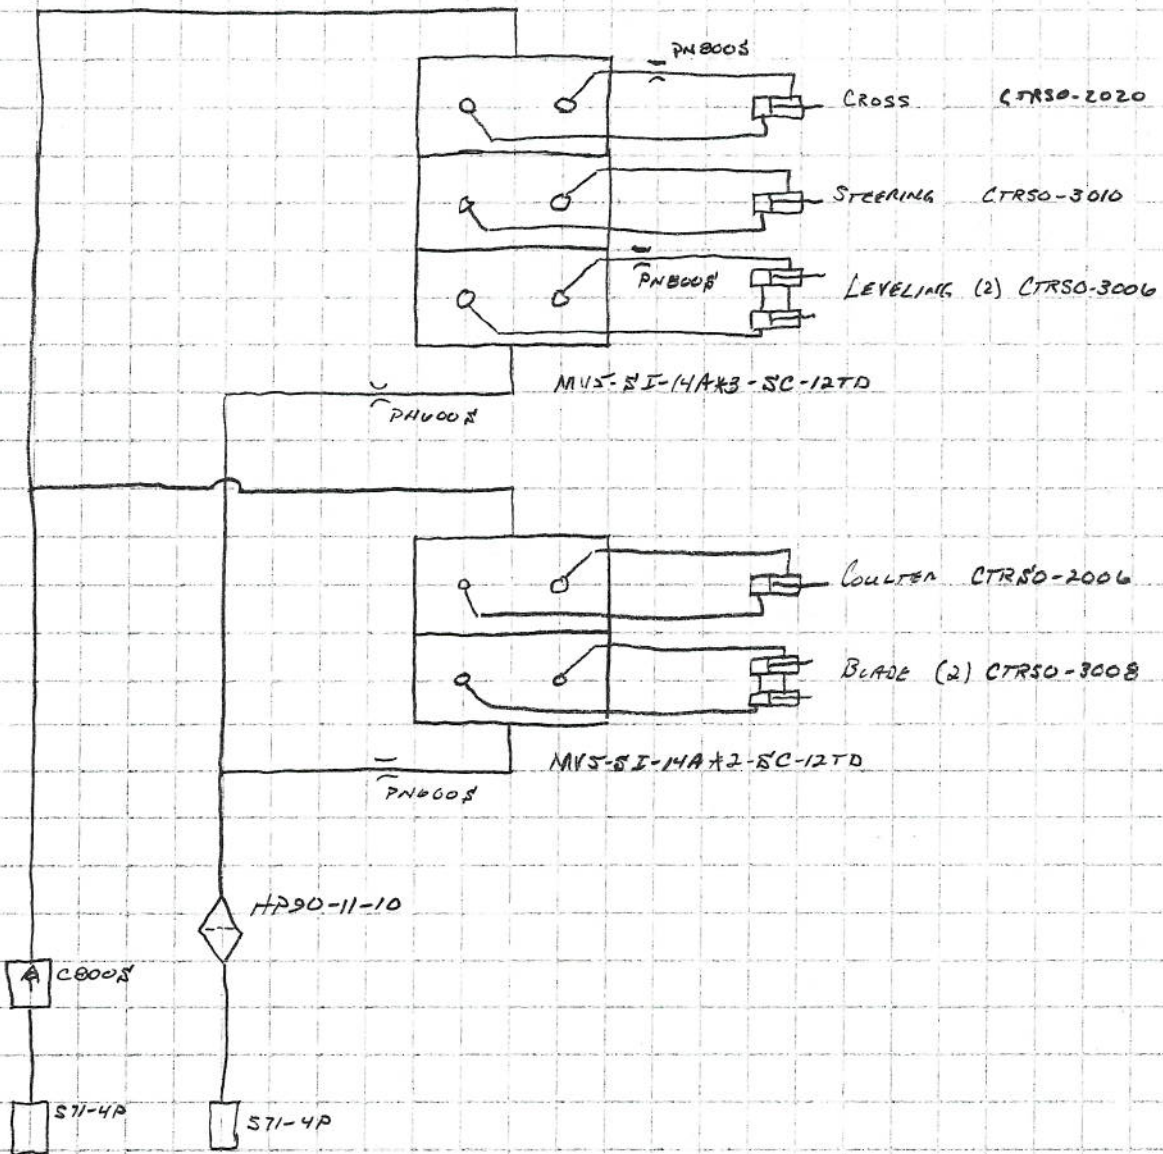 PN800S
CROSS CTR50-2020
STEERING CTR50-3010
PN800S
LEVELING (2) CTR50-3006
MV5-SI-14A*3-SC-12TD
PN600S
COULTER CTR50-2006
BLADE (2) CTR50-3008
MV5-SI-14A*2-SC-12TD
PN600S
HP90-11-10
C800S
S71-4P
S71-4P